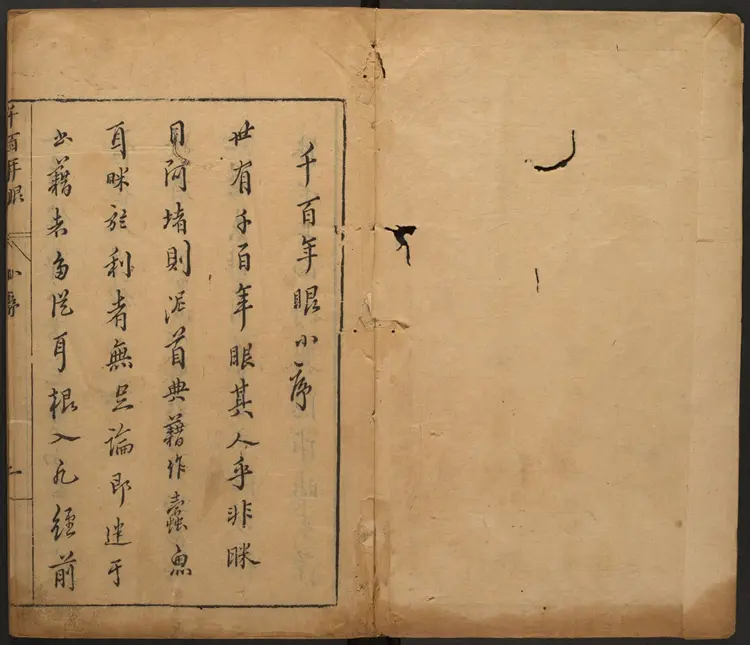 千百年眼小序
世有千百年眼其人乎非眯
目阿堵則泥首典藉作蠹魚
耳眯於利者無足論即迷于
書藉者多從耳根入凡經前
千百年眼 小序 一